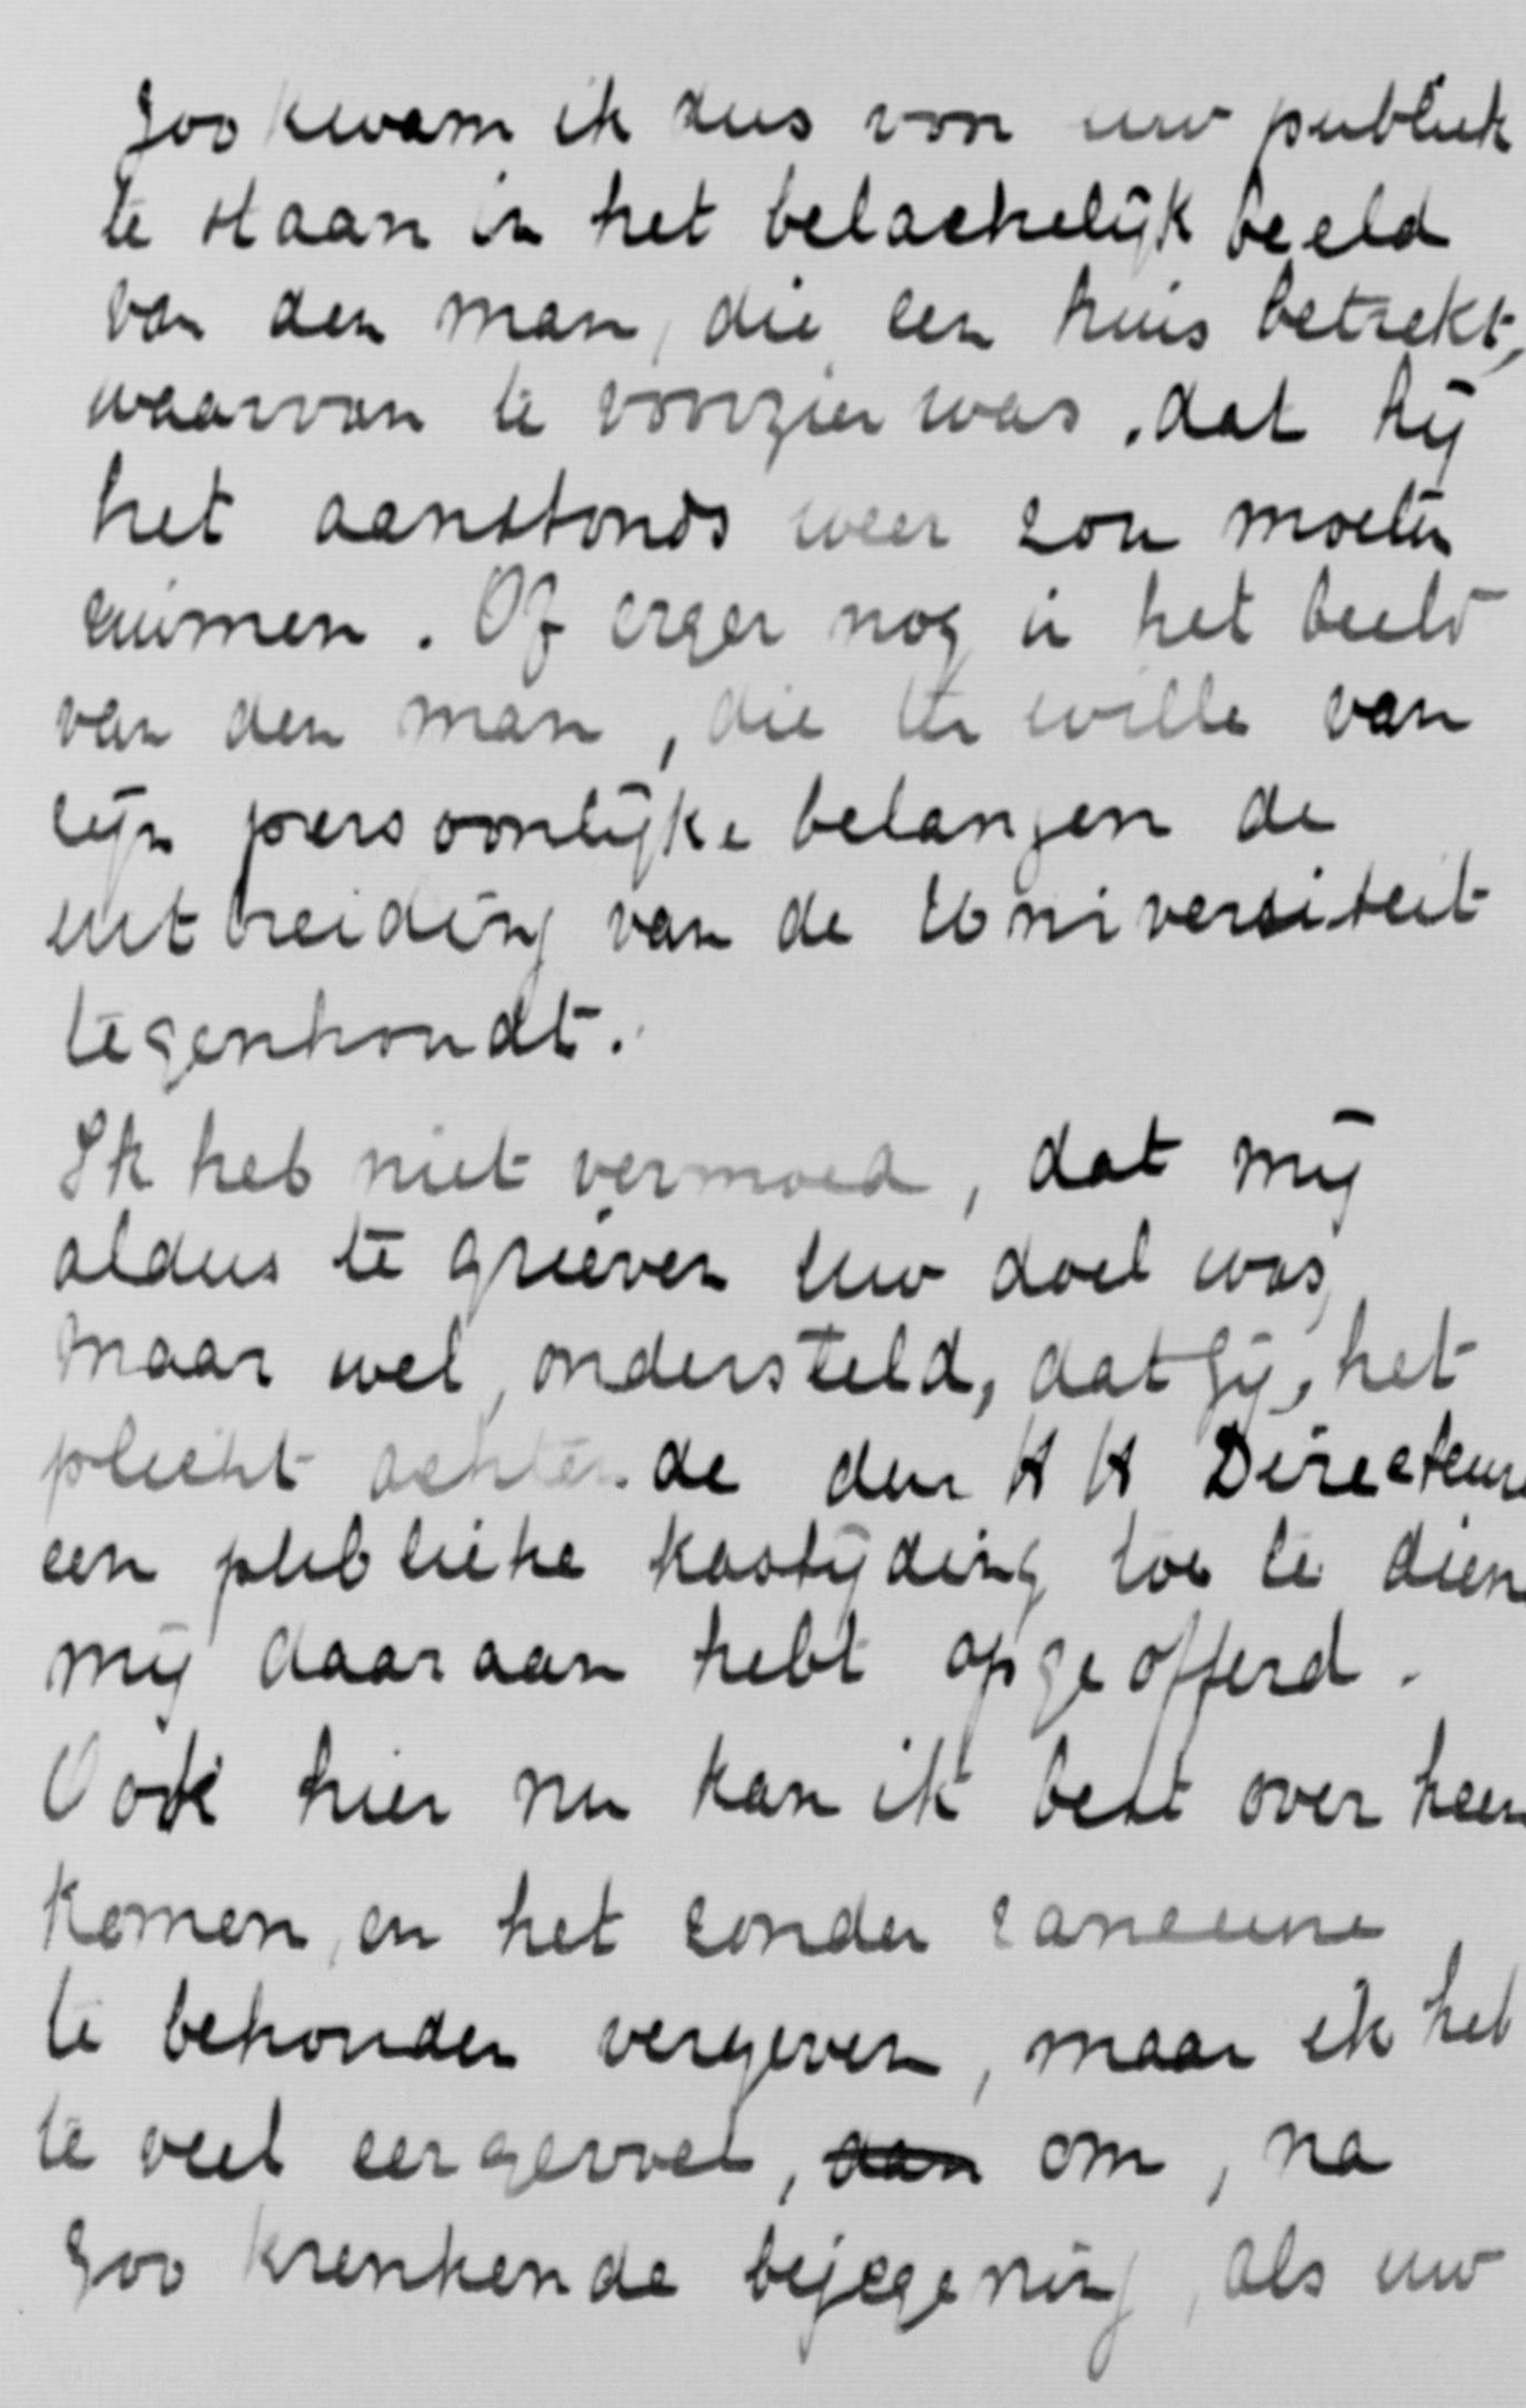 Zoo kwam ik dus voor uw publiek
te staan in het belachelijk beeld
van den man, die een huis betrekt,
waarvan te voorzien was, dat hij
het aanstonds weer zou moeten
ruimen. Of erger nog in het beeld
van den man, die ter wille van
zijn persoonlijke belangen de
uitbreiding van de Universiteit
tegenhoudt.
Ik heb niet vermoed, dat mij
aldus te grieven uw doel was,
maar wel, ondersteld, dat gij, het
plicht achtende den H H Directeure
een publieke kastijding toe te dien
mij daaraan hebt opgeofferd.
Ook hier nu kan ik best over heen
komen, en het zonder rancune
te behouden vergeven, maar ik heb
te veel eergevoel, dan om, na
zoo krenkende bejegening, als uw